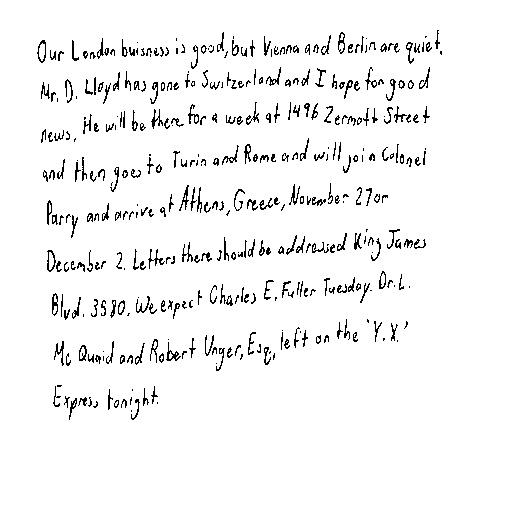 Our London buisness is good, but Vienna and Berlin are quiet.
Mr. D. Lloyd has gone to Switzerland and I hope for good
news. He will be there for a week at 1496 Zermott Street
and then goes to Turin and Rome and will join Colonel
Parry and arrive at Athens, Greece, November 27 or
December 2. Letters there should be addressed King James
Blvd. 3580. We expect Charles E. Fuller Tuesday. Dr. L.
Mc Quaid and Robert Unger, Esq., left on the 'Y.X.'
Express tonight.